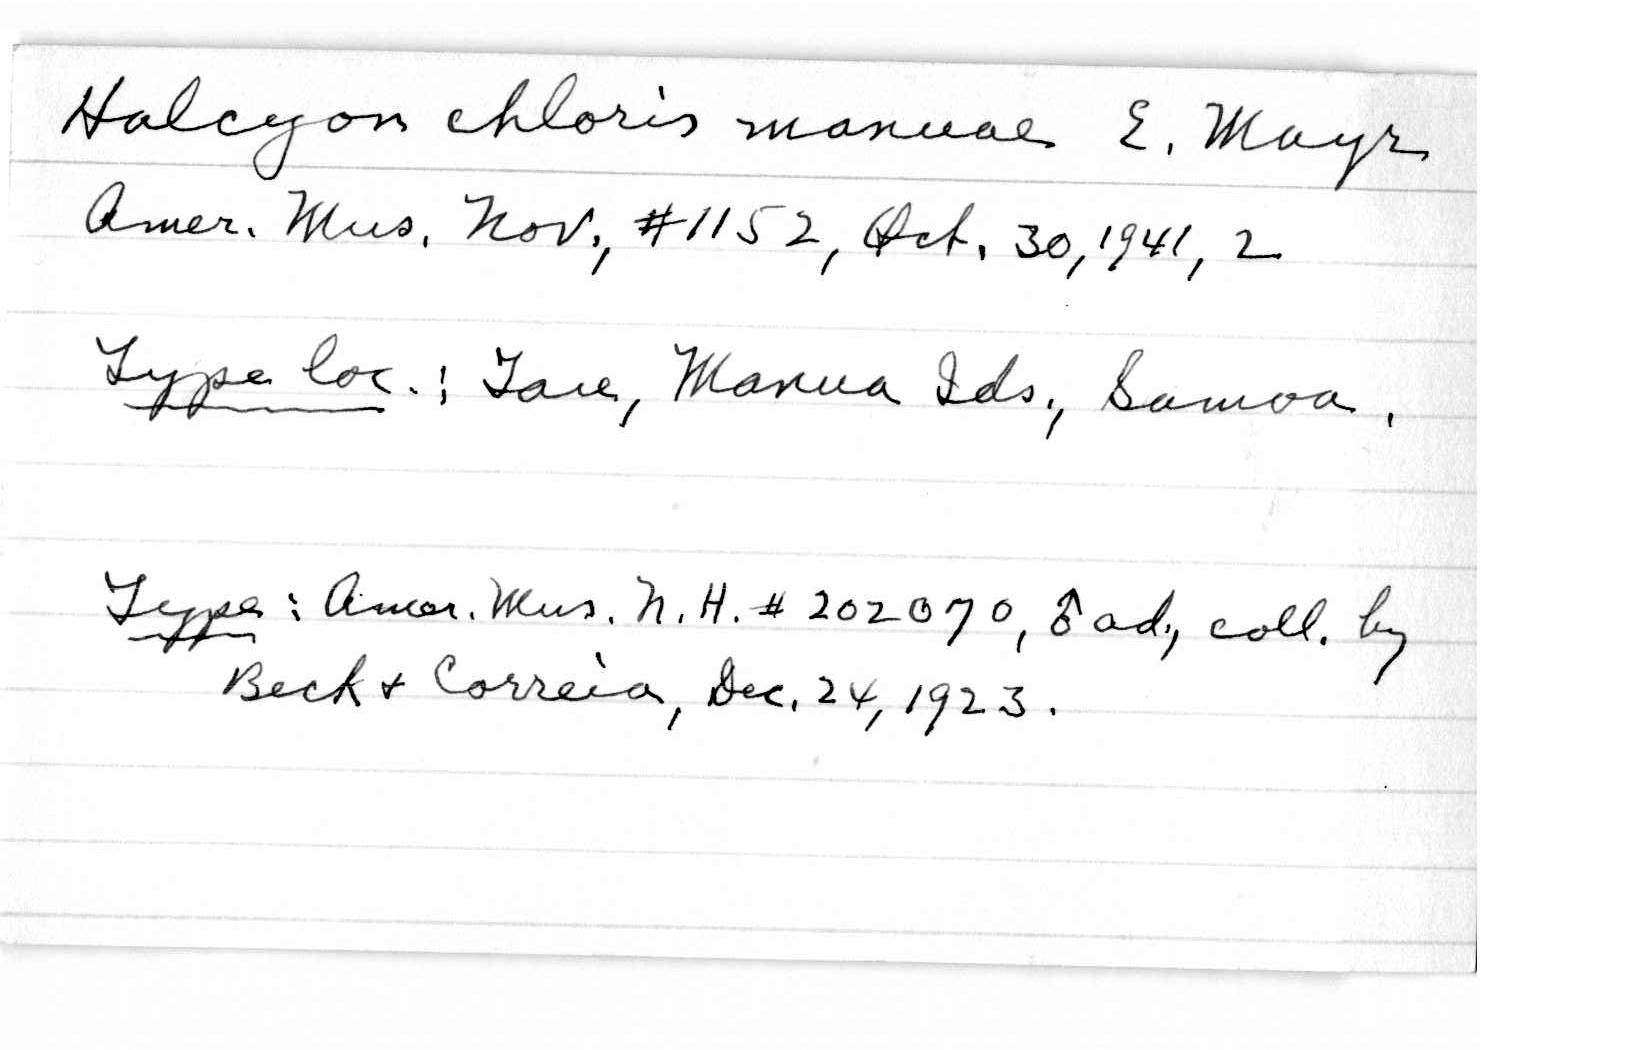 Halcyon chloris manuae E. Mayr
Amer. Mus. Nov., #1152, Oct. 30, 1941, 2
Type loc.: Tau, Manua Ids., Samoa.
Type: Amer. Mus. N. H. # 202070, ♂ ad., coll. by
Beck & Correia, Dec. 24, 1923.